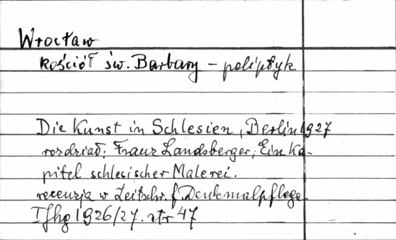 Wrocław
Kościół św. Barbary – poliptyk
Die Kunst in Schlesien, Berlin 1927
rozdział: Franz Landsberger, Ein Ka-
pitel schlesischer Malerei.
recenzja w Zeitschr. f. Denkmalpflege
Jhg 1926/27. str 47